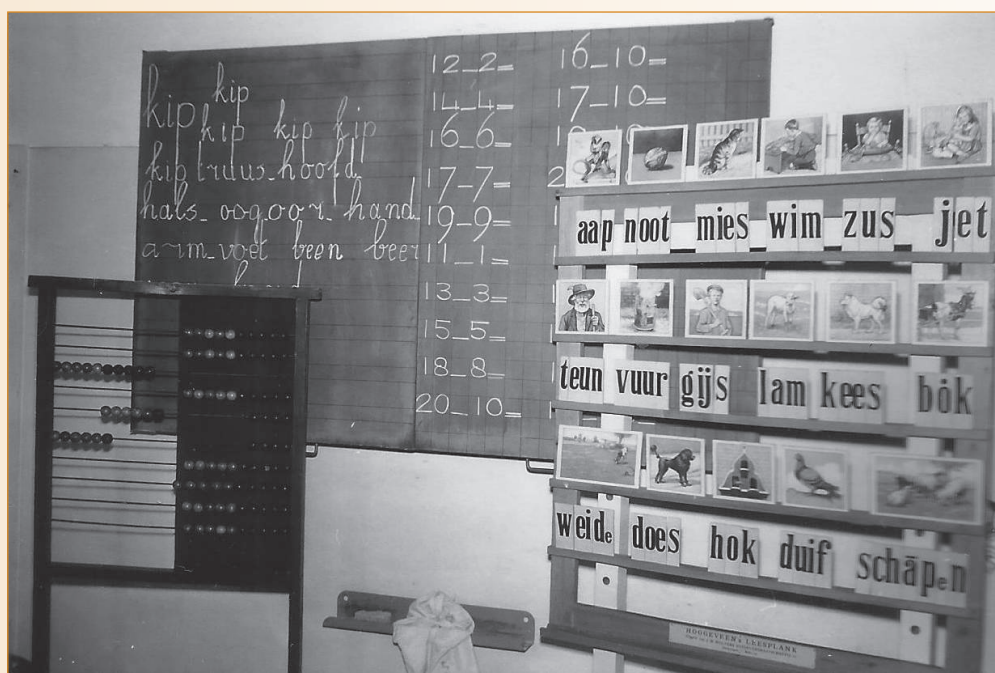 kip
kip
kip kip kip
kip truus hoofd
hals_oog oor_hand
arm_voet been beer
12_2=
14_4=
16_6=
17_7=
19_9=
11_1=
13_3=
15_5=
18_8=
20_10=
16_10=
17_10=
aap noot mies wim zus jet
teun vuur gijs lam kees bok
weide does hok duif schāpen
HOOGEVEEN'S LEESPLANK